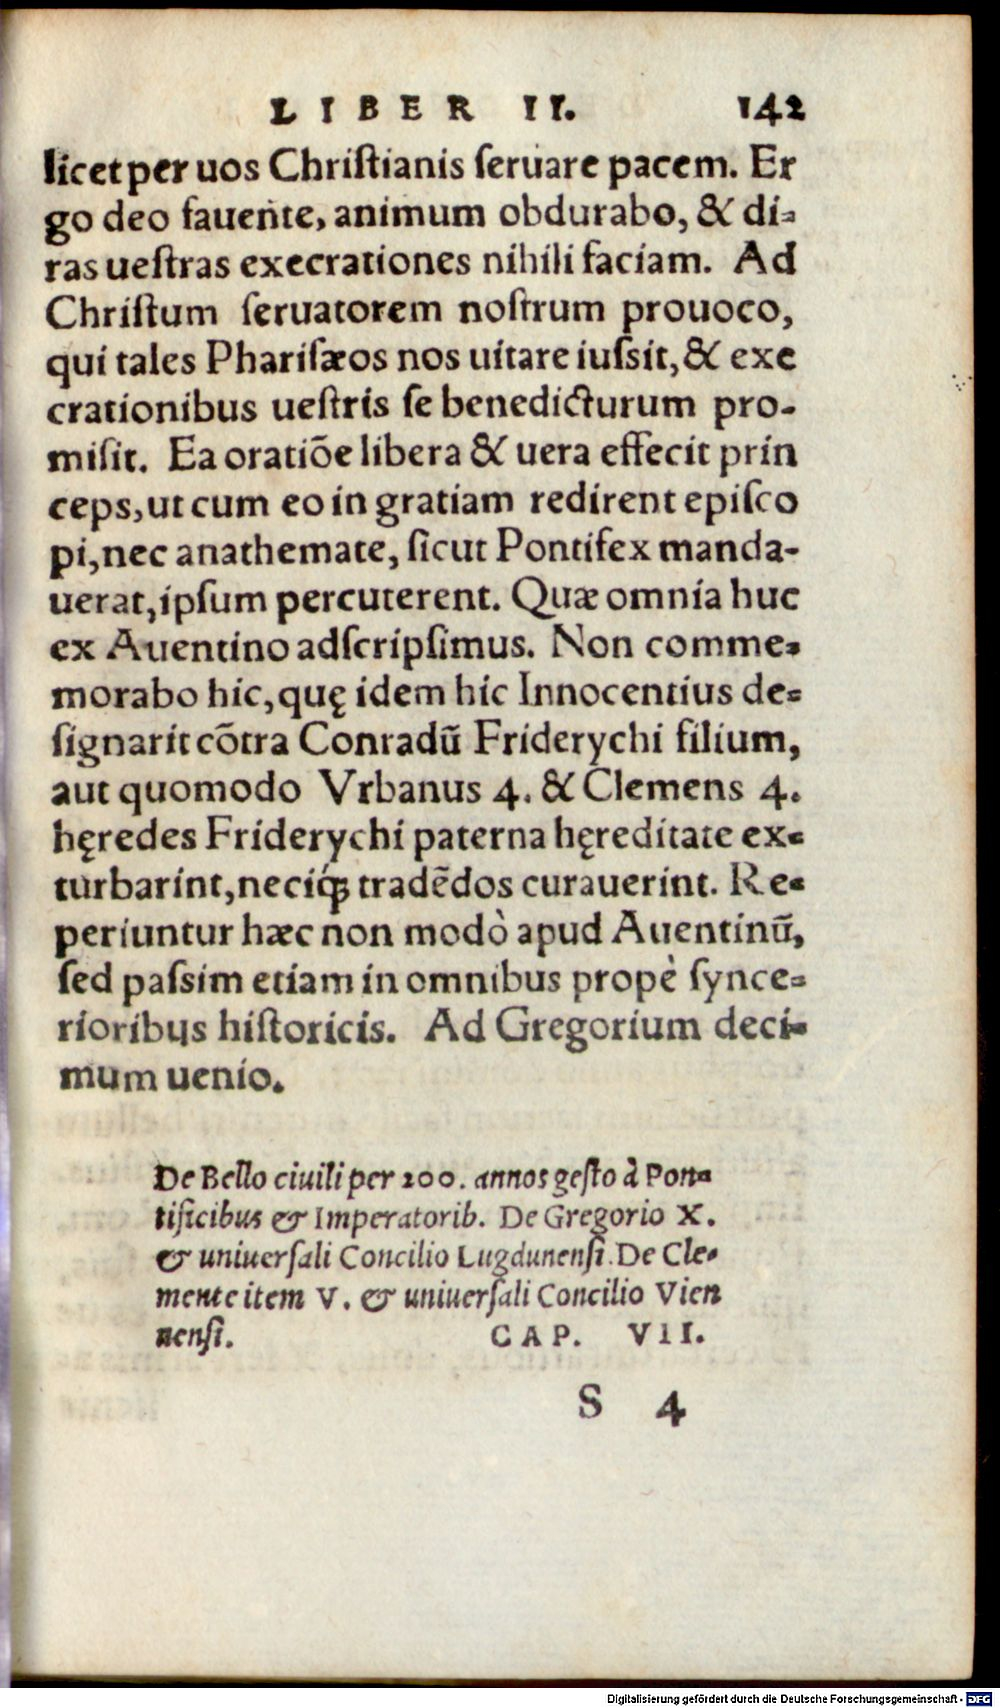 LIBER II. 142
licet per uos Christianis seruare pacem. Er
go deo fauente, animum obdurabo, & di-
ras uestras execrationes nihili faciam. Ad
Christum seruatorem nostrum prouoco,
qui tales Pharisæos nos uitare iussit, & exe
crationibus uestris se benedicturum pro-
misit. Ea oratiõe libera & uera effecit prin
ceps, ut cum eo in gratiam redirent episco
pi, nec anathemate, sicut Pontifex manda-
uerat, ipsum percuterent. Quæ omnia huc
ex Auentino adscripsimus. Non comme-
morabo hic, quę idem hic Innocentius de-
signarit cõtra Conradũ Friderychi filium,
aut quomodo Vrbanus 4. & Clemens 4.
hęredes Friderychi paterna hęreditate ex-
turbarint, neciq́; tradẽdos curauerint. Re-
periuntur hæc non modò apud Auentinũ,
sed passim etiam in omnibus propè synce-
rioribus historicis. Ad Gregorium deci-
mum uenio.
De Bello ciuili per 200. annos gesto à Pon-
tificibus & Imperatorib. De Gregorio X.
& uniuersali Concilio Lugdunensi. De Cle-
mente item V. & uniuersali Concilio Vien
nensi. CAP. VII.
S 4
Digitalisierung gefördert durch die Deutsche Forschungsgemeinschaft - DFG